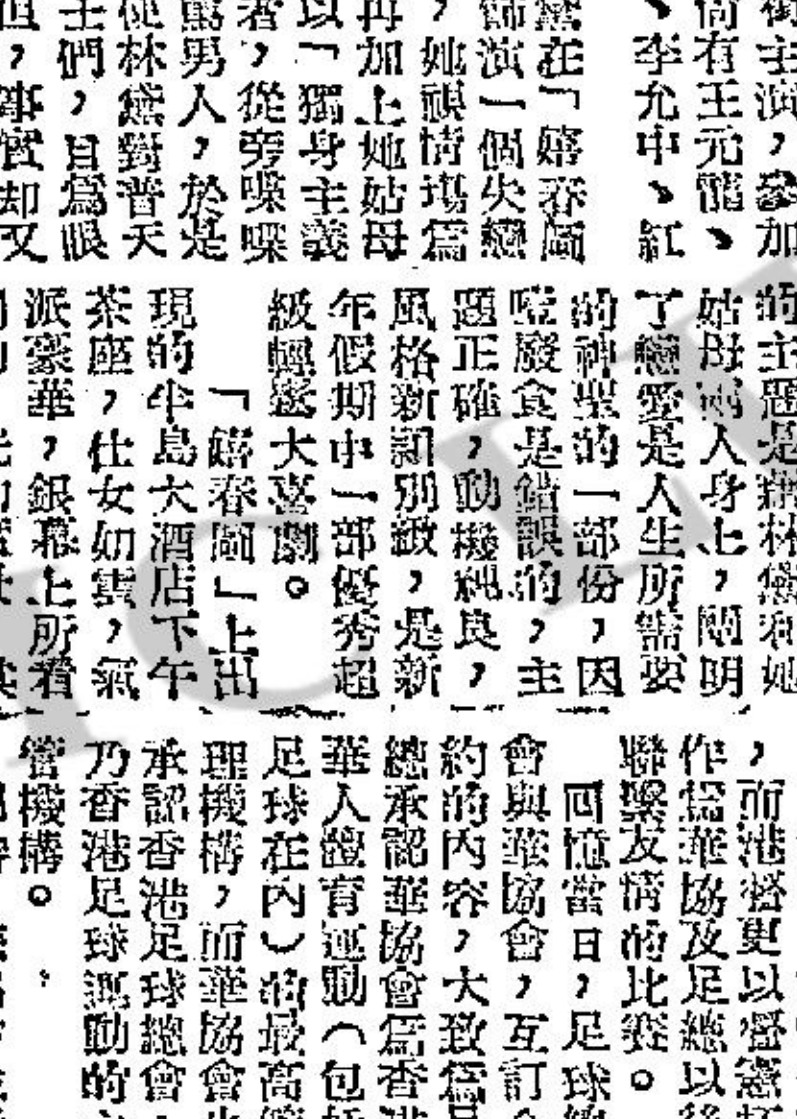 街主演，參加
尚有王元龍、
、李允中、紅
黛在「嬉春圖
飾演一個失戀
，她視情場爲
再加上她姑母
以「獨身主義
者，從旁喋喋
罵男人，於是
使林黛對普天
士們，目爲眼
但，事實却又
的主題是藉林黛和她
姑母兩人身上，闡明
了戀愛是人生所需要
的神聖的一部份，因
噎廢食是錯誤的，主
題正確，動機純良，
風格新穎別緻，是新
年假期中一部優秀超
級輕鬆大喜劇。
「嬉春圖」上出
現的半島大酒店下午
茶座，仕女如雲，氣
派豪華，銀幕上所看
，而港督更以督憲
作爲華協及足總以後
聯繫友情的比賽。
回憶當日，足球
會與華協會，互訂
約的內容，大致爲
總承認華協會爲香港
華人體育運動（包括
足球在內）的最高管
理機構，而華協會
承認香港足球總會，
乃香港足球運動的
管機構。